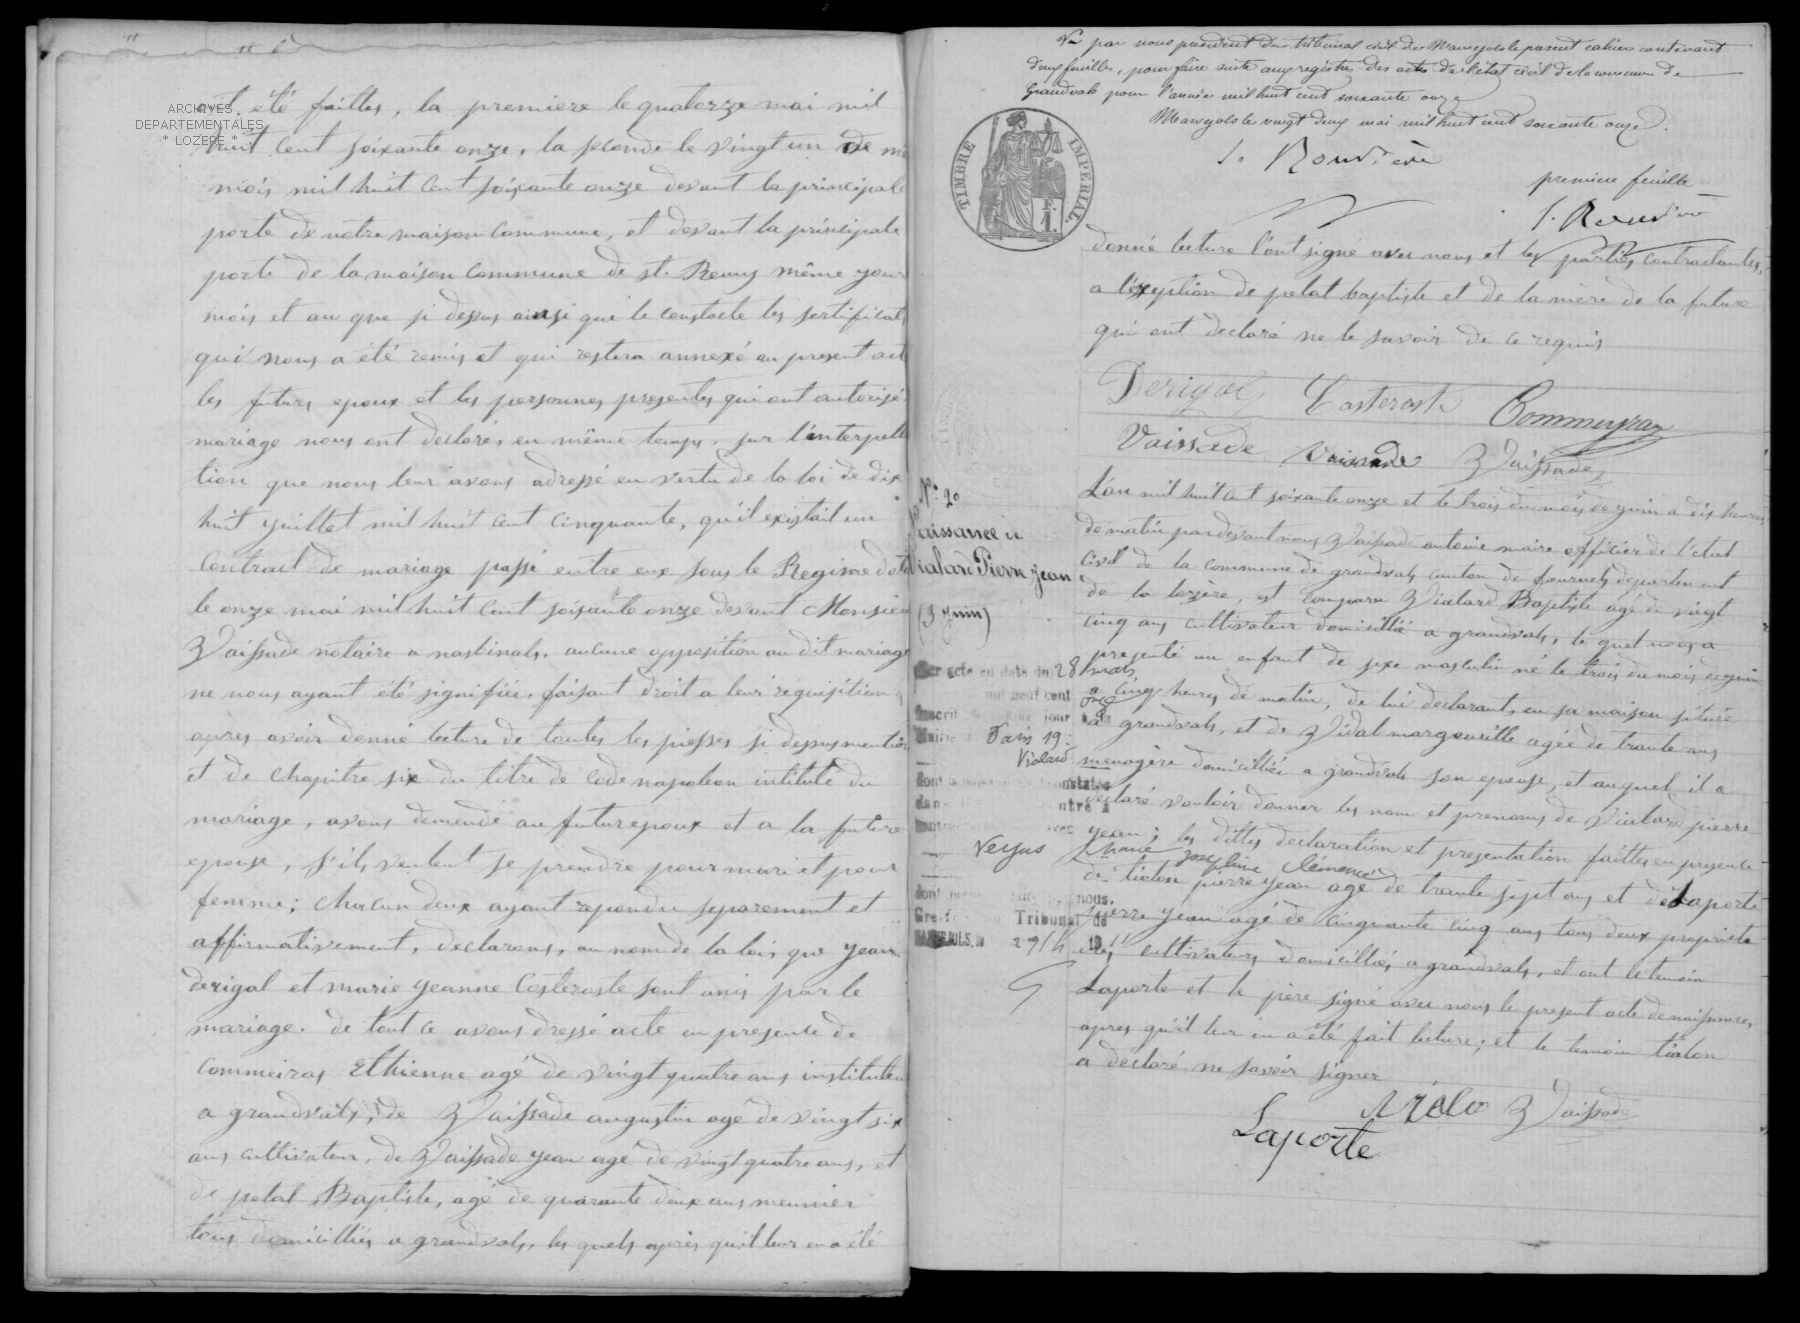 ARCHIVES
DEPARTEMENTALES
* LOZERE *
ont été faittes, la première le quatorze mai mil
huit cent soixante onze, la seconde le vingt un de
mois mil huit cent soixante onze devant la principale
porte de notre maison commune, et devant la principale
porte de la maison commune de st. Remy même jour
mois et an que si dessus ainsi que le constate les sertificats
qui nous a été remis et qui restera annexé au present acte
les futurs epoux et les personnes presentes qui ont autorisé
mariage nous ont declarés en même temps, sur l'interpella
tion que nous leur avons adressé en vertu de la loi de dix
huit juillet mil huit cent cinquante, qu'il existait un
contrat de mariage passé entre eux sous le Regime
le onze mai mil huit cent soixante onze devant Monsieur
Vaissade notaire a nasbinals. aucune opposition au dit mariage
ne nous ayant été signifiée, faisant droit a leur requisition
apres avoir donné lecture de toutes les piesses si dessus
et de chapitre six du titre de code napoleon intitulé du
mariage, avons demendé au futur epoux et a la future
epouse, s'ils veulent se prendre pour mari et pour
femme; chacun deux ayant repondu separement et
affirmativement, declarons, au nom de la loi, que jean
derigal et marie jeanne Costeroste sont unis par le
mariage. de tout ce avons dressé acte en presence de
commeiras Ethienne agé de vingt quatre ans instituteur
a grandvals, de Vaissade augustin agé de vingt six
ans cultivateur, de Vaissade jean agé de vingt quatre ans, et
de pelat Baptiste, agé de quarante deux ans meunier
tous domicilliés a grandvals, les quels après qu'il leur en a été
Vu par nous president du tribunal civil de Marvejols le present cahier contenant
deux feuilles, pour faire suite aux registres des actes de l'état civil de la commune de
Grandvals pour l'année mil huit cent soixante onze
Marvejols le vingt deux mai mil huit cent soixante onze.
TIMBRE IMPERIAL
premiere feuille
donné lecture l'ont signé avec nous et les parties contractantes,
a l'exeption de pelat baptiste et de la mère de la future
qui ont declaré ne le savoir de ce requis
Derigal Costeroste Commeyras
Vaissade Vaissade Vaissade
N.° 20
Naissance de
Vialard Pierre jean
(3 Juin)
L'an mil huit cent soixante onze et le trois du mois de juin a dix heures
de matin par devant nous Vaissade antoine maire officier de l'etat
civil de la commune de grandvals canton de fournels departement
de la lozère, est comparu Vialard Baptiste agé de vingt
cinq ans cultivateur domicillié a grandvals, le quel nous a
presenté un enfant de sexe masculin né le trois du mois de juin
a cinq heures de matin, de lui declarant, en sa maison située
a grandvals, et de Vidal margueritte agée de trante ans
menagère domicilliée a grandvals son epouse, et auquel il a
declaré vouloir donner les nom et prenoms de Vialard pierre
jean; les dittes declaration et presentation faittes en presence
de tialon pierre jean agé de trente sept ans et de Laporte
pierre jean agé de cinquante cinq ans tous deux proprieta
ires cultivateurs domicilliés a grandvals, et ont le temoin
Laporte et le père signé avec nous le present acte de naissance,
apres qu'il leur en a été fait lecture; et le temoin tialon
a déclaré ne savoir signer
Par acte en date du 28 mars
mil neuf cent onze
Paris 19e
Vialard
Marie Josephine Clémence
nous,
Tribunal de
Vaissade
Laporte